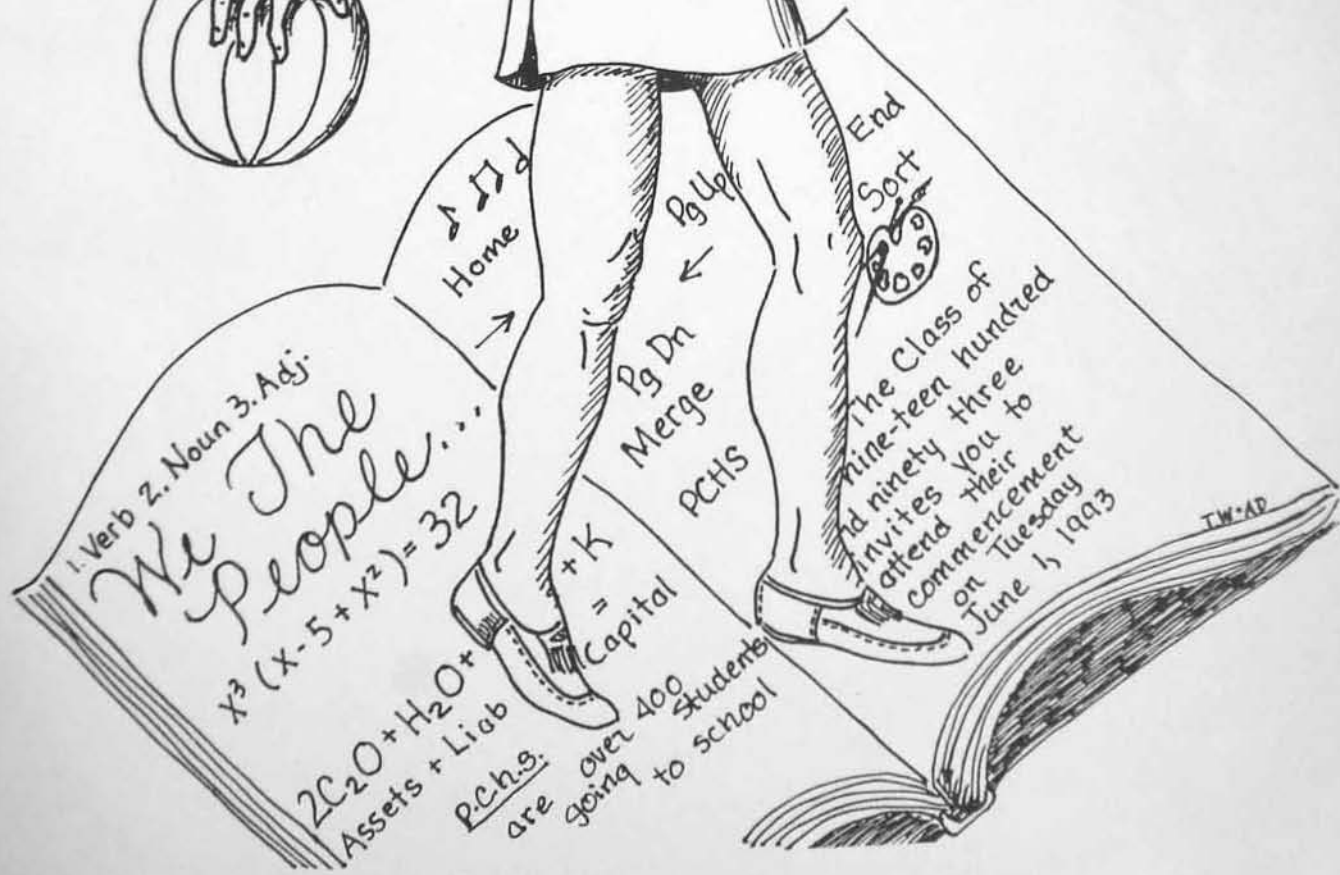 1. Verb 2. Noun 3. Adj.
We The
People...
x³ (x - 5 + x²) = 32
2C₂O + H₂O +
+ K
Assets + Liab
=
Capital
P.C.h.s.
are over 400
going students
to school
Home
Pg Up
Pg Dn
Merge
PCHS
End
Sort
The Class of
nine-teen hundred
nd ninety three
invites you to
attend their
commencement
on Tuesday
June 1, 1993